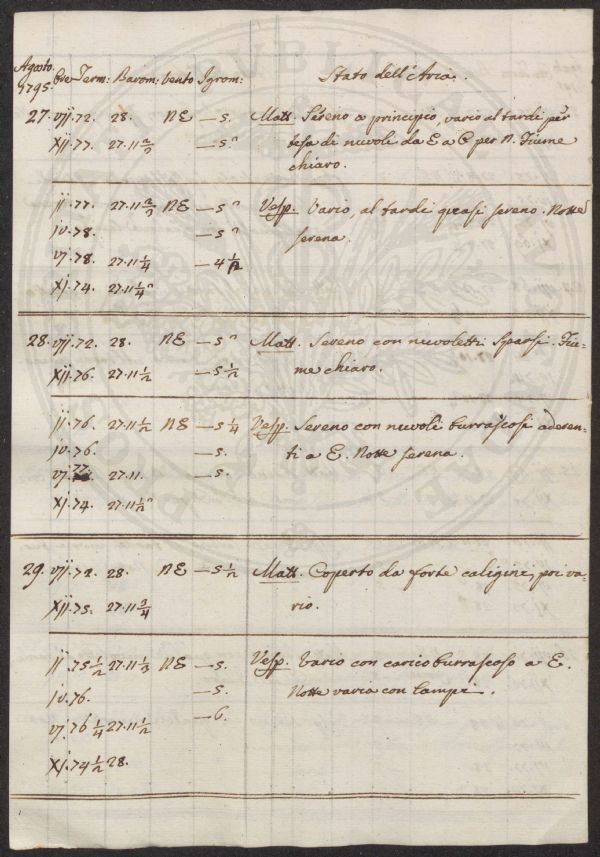 Agosto 1795. Ore Term: Barom: Vento Igrom: Stato dell'Aria.
27. vij. 72. 28. NE — 5. Matt. Sereno a principio, vario al tardi per
xij. 77. 27.11 2/3 — 5." tesa di nuvoli da E a O per N. Fiume
chiaro.
ij. 77. 27.11 2/3 NE — 5" Vesp. Vario, al tardi quasi sereno. Notte
iv. 78. — 5" serena.
vj. 78. 27.11 1/4 — 4 1/2
xj. 74. 27.11 1/4"
28. vij. 72. 28. NE — 5" Matt. Sereno con nuvoletti sparsi. Fiu-
xij. 76. 27.11 1/2 — 5 1/2 me chiaro.
ij. 76. 27.11 1/2 NE — 5 1/4 Vesp. Sereno con nuvoli burrascosi aderen-
iv. 76. — 5. ti a E. Notte serena.
vj. 77. 27.11. — 5.
xj. 74. 27.11 1/2"
29. vij. 72. 28. NE — 5 1/2 Matt. Coperto da forte caligine, poi va-
xij. 75. 27.11 3/4 rio.
ij. 75 1/2 27.11 1/3 NE — 5. Vesp. Vario con carico burrascoso a E.
iv. 76. — 5. Notte varia con lampi.
vj. 76 1/4 27.11 1/2 — 6.
xj. 74 1/2 28.